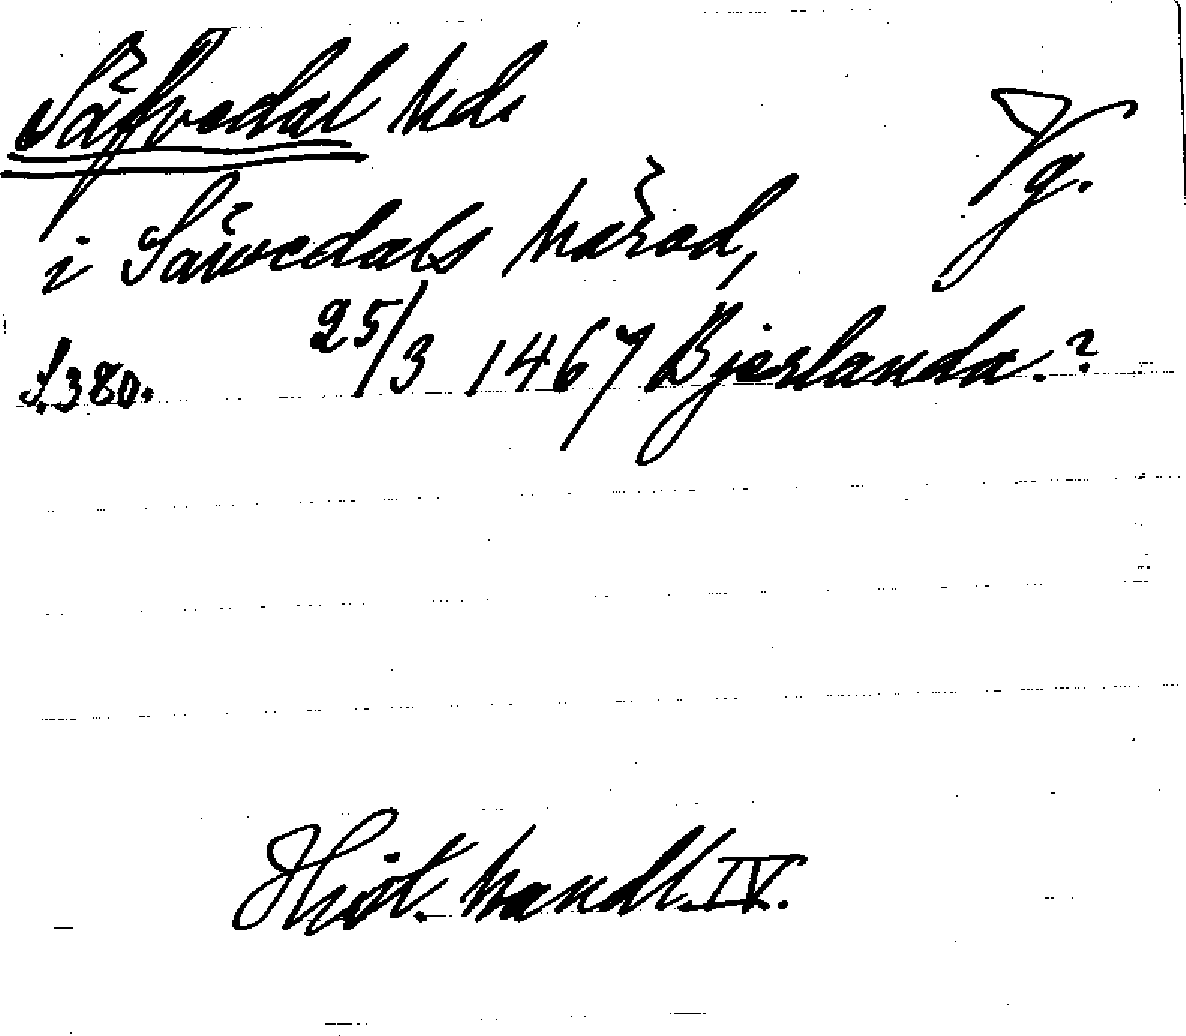 Säfvedal hd. Vg.
i Säwedals hæræd,
S. 380. 25/3 1467 Bjerlanda.?
Hist. handl. IV.